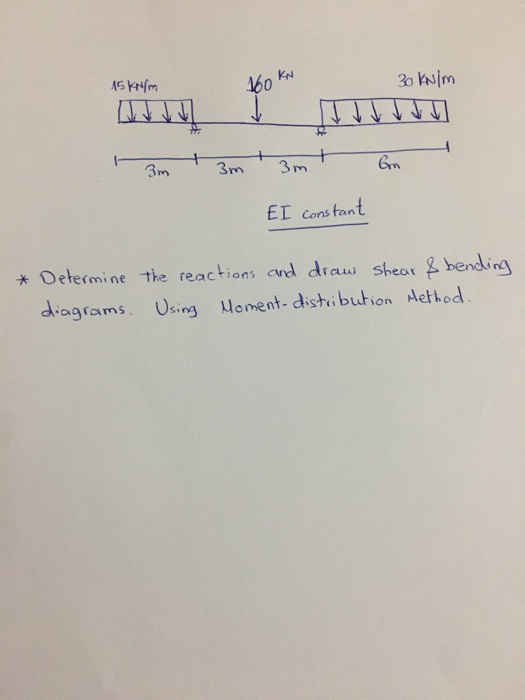 15 KN/m 160 KN 30 KN/m
3m 3m 3m 6m
EI constant
* Determine the reactions and draw shear & bending
diagrams. Using Moment-distribution Method.